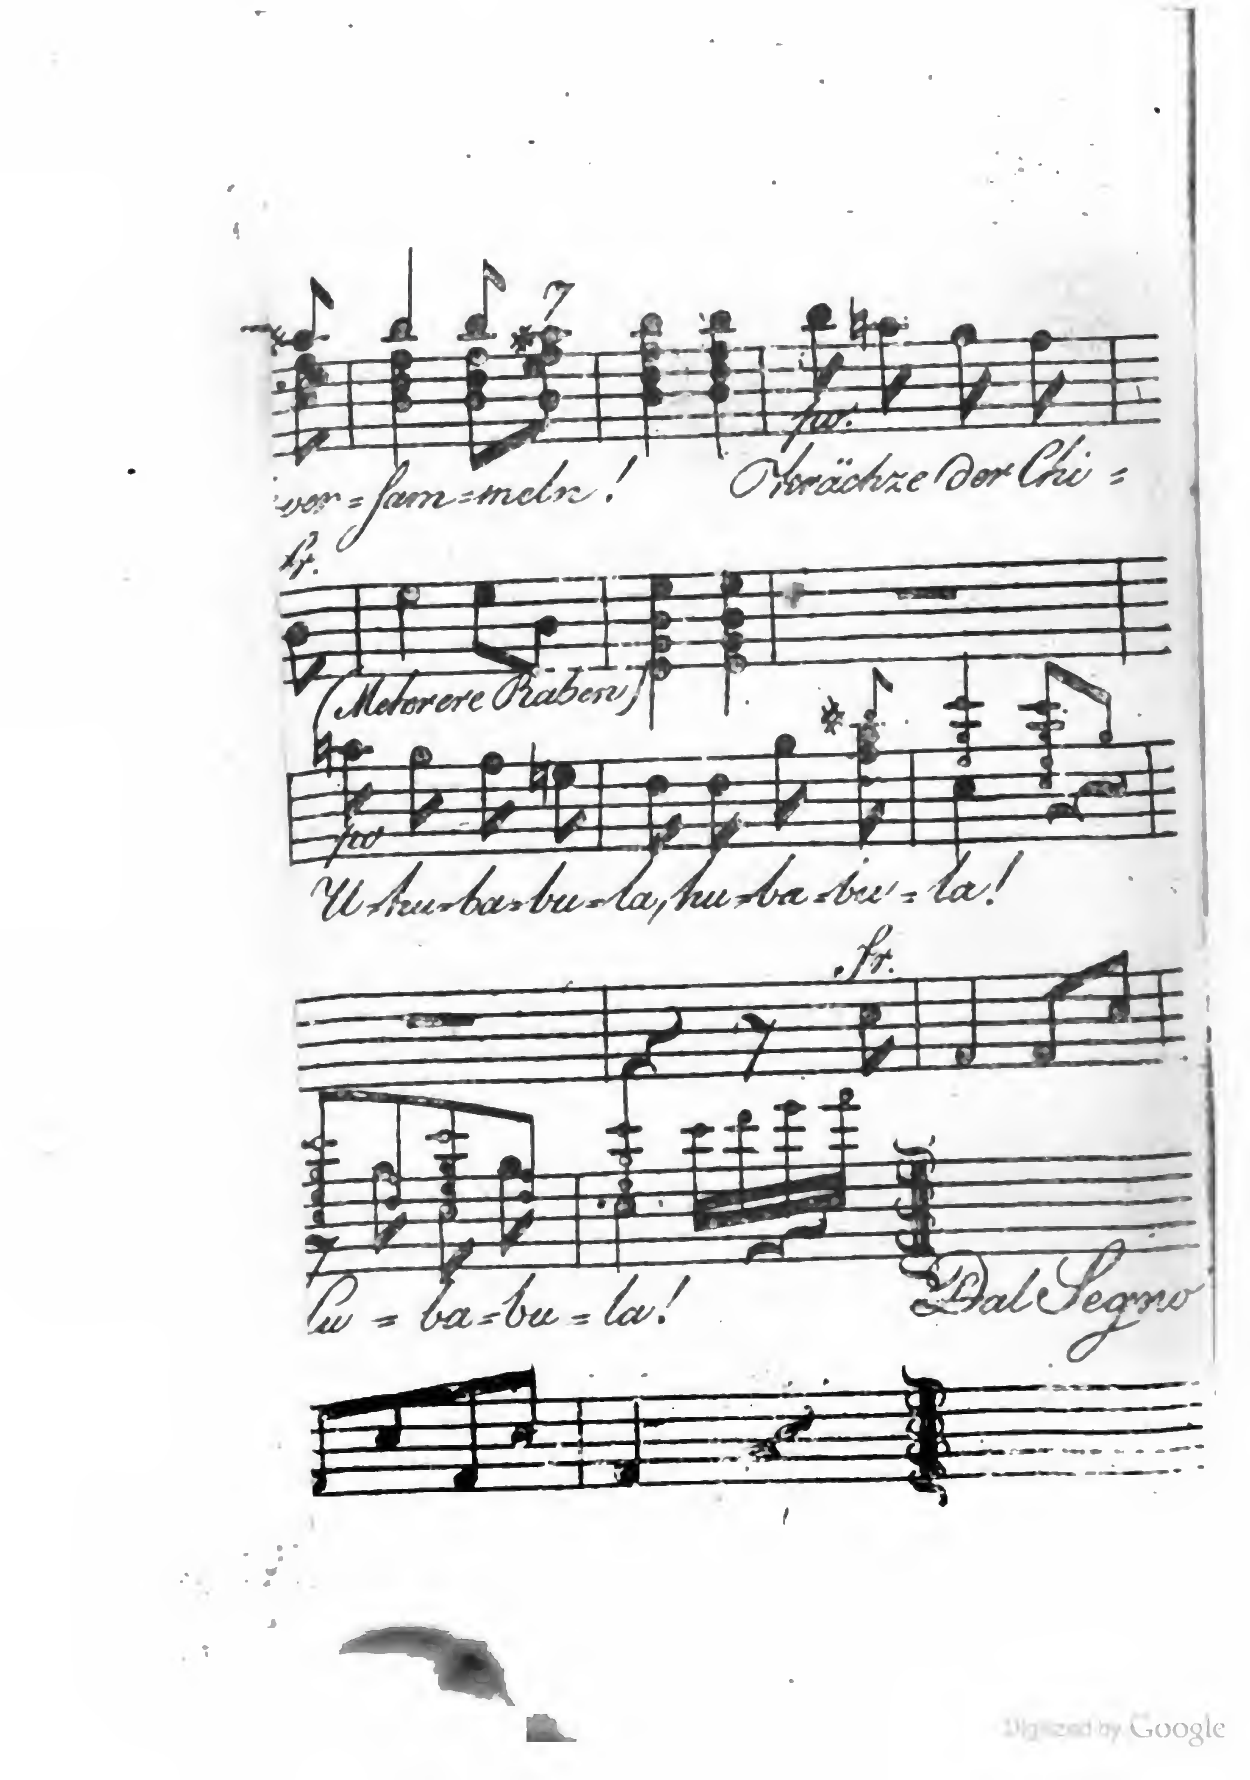 ver=sam=meln! O krächze der Chi=
(Mehrere Raben)
U=hu=ba=bu=la, hu=ba=bu=la!
fr.
Lu=ba=bu=la!
Dal Segno
Digitized by Google